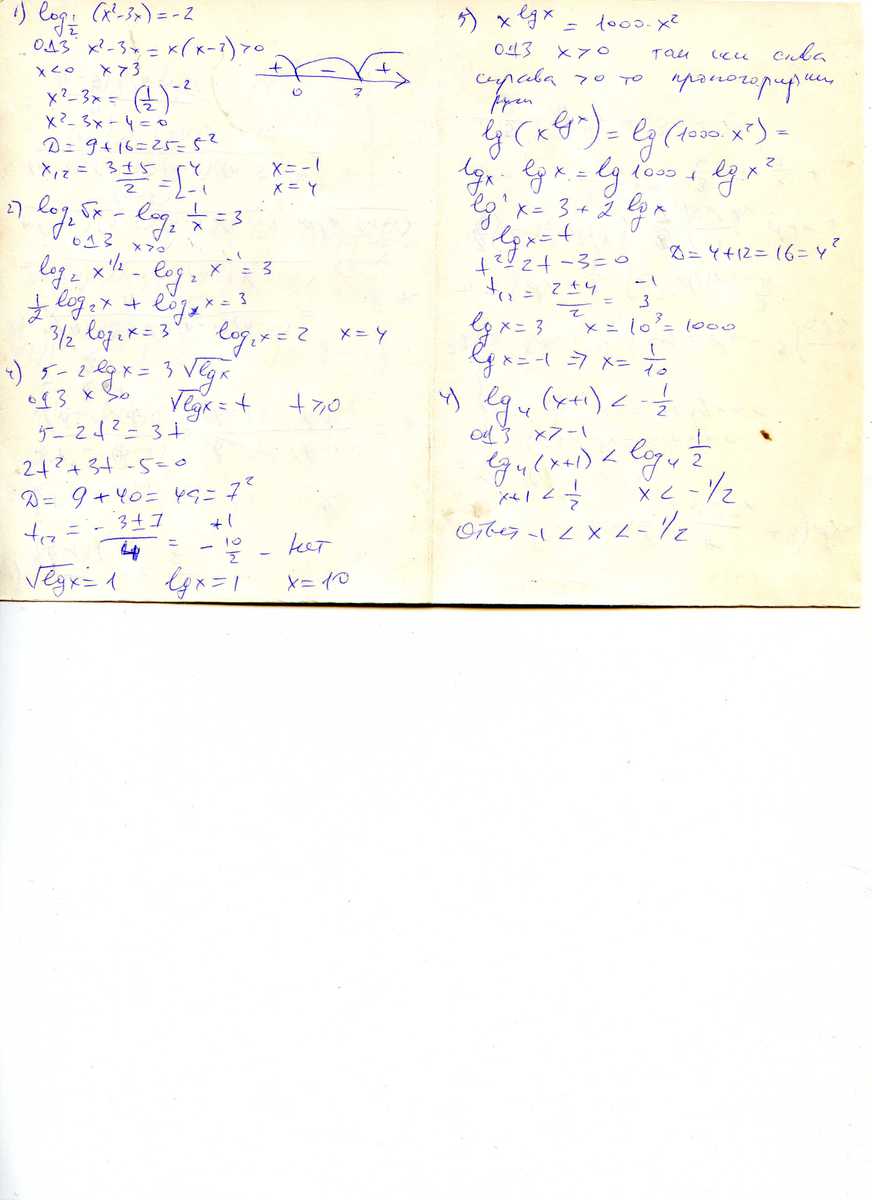 1) log½ (x²-3x) = -2
ОДЗ x²-3x = x(x-3) > 0
x<0 x>3
+ - +
0 3
x²-3x = (1/2)⁻²
x²-3x-4=0
Д = 9+16=25=5²
x₁,₂ = (3±5)/2 = [4 -1 x=-1 x=4
2) log₂ √x - log₂ 1/x = 3
ОДЗ x>0
log₂ x^1/2 - log₂ x⁻¹ = 3
1/2 log₂x + log₂ x = 3
3/2 log₂x = 3 log₂x = 2 x = 4
4) 5 - 2 lg x = 3 √lgx
ОДЗ x>0 √lgx = t t ≥ 0
5 - 2t² = 3t
2t² + 3t - 5 = 0
Д = 9 + 40 = 49 = 7²
t₁,₂ = (-3±7)/4 = +1 -10/2 - нет
√lgx = 1 lgx = 1 x = 10
5) x^lgx = 1000·x²
ОДЗ x>0 так как слева
справа >0 то
lg(x^lgx) = lg(1000·x²) =
lgx · lgx = lg 1000 + lg x²
lg² x = 3 + 2 lgx
lgx = t
t²-2t-3=0 Д = 4+12=16=4²
t₁,₂ = (2±4)/2 = -1 3
lgx = 3 x = 10³ = 1000
lgx = -1 => x = 1/10
4) lg₄ (x+1) < -1/2
ОДЗ x>-1
lg₄(x+1) < log₄ 1/2
x+1 < 1/2 x < -1/2
Ответ -1 < x < -1/2